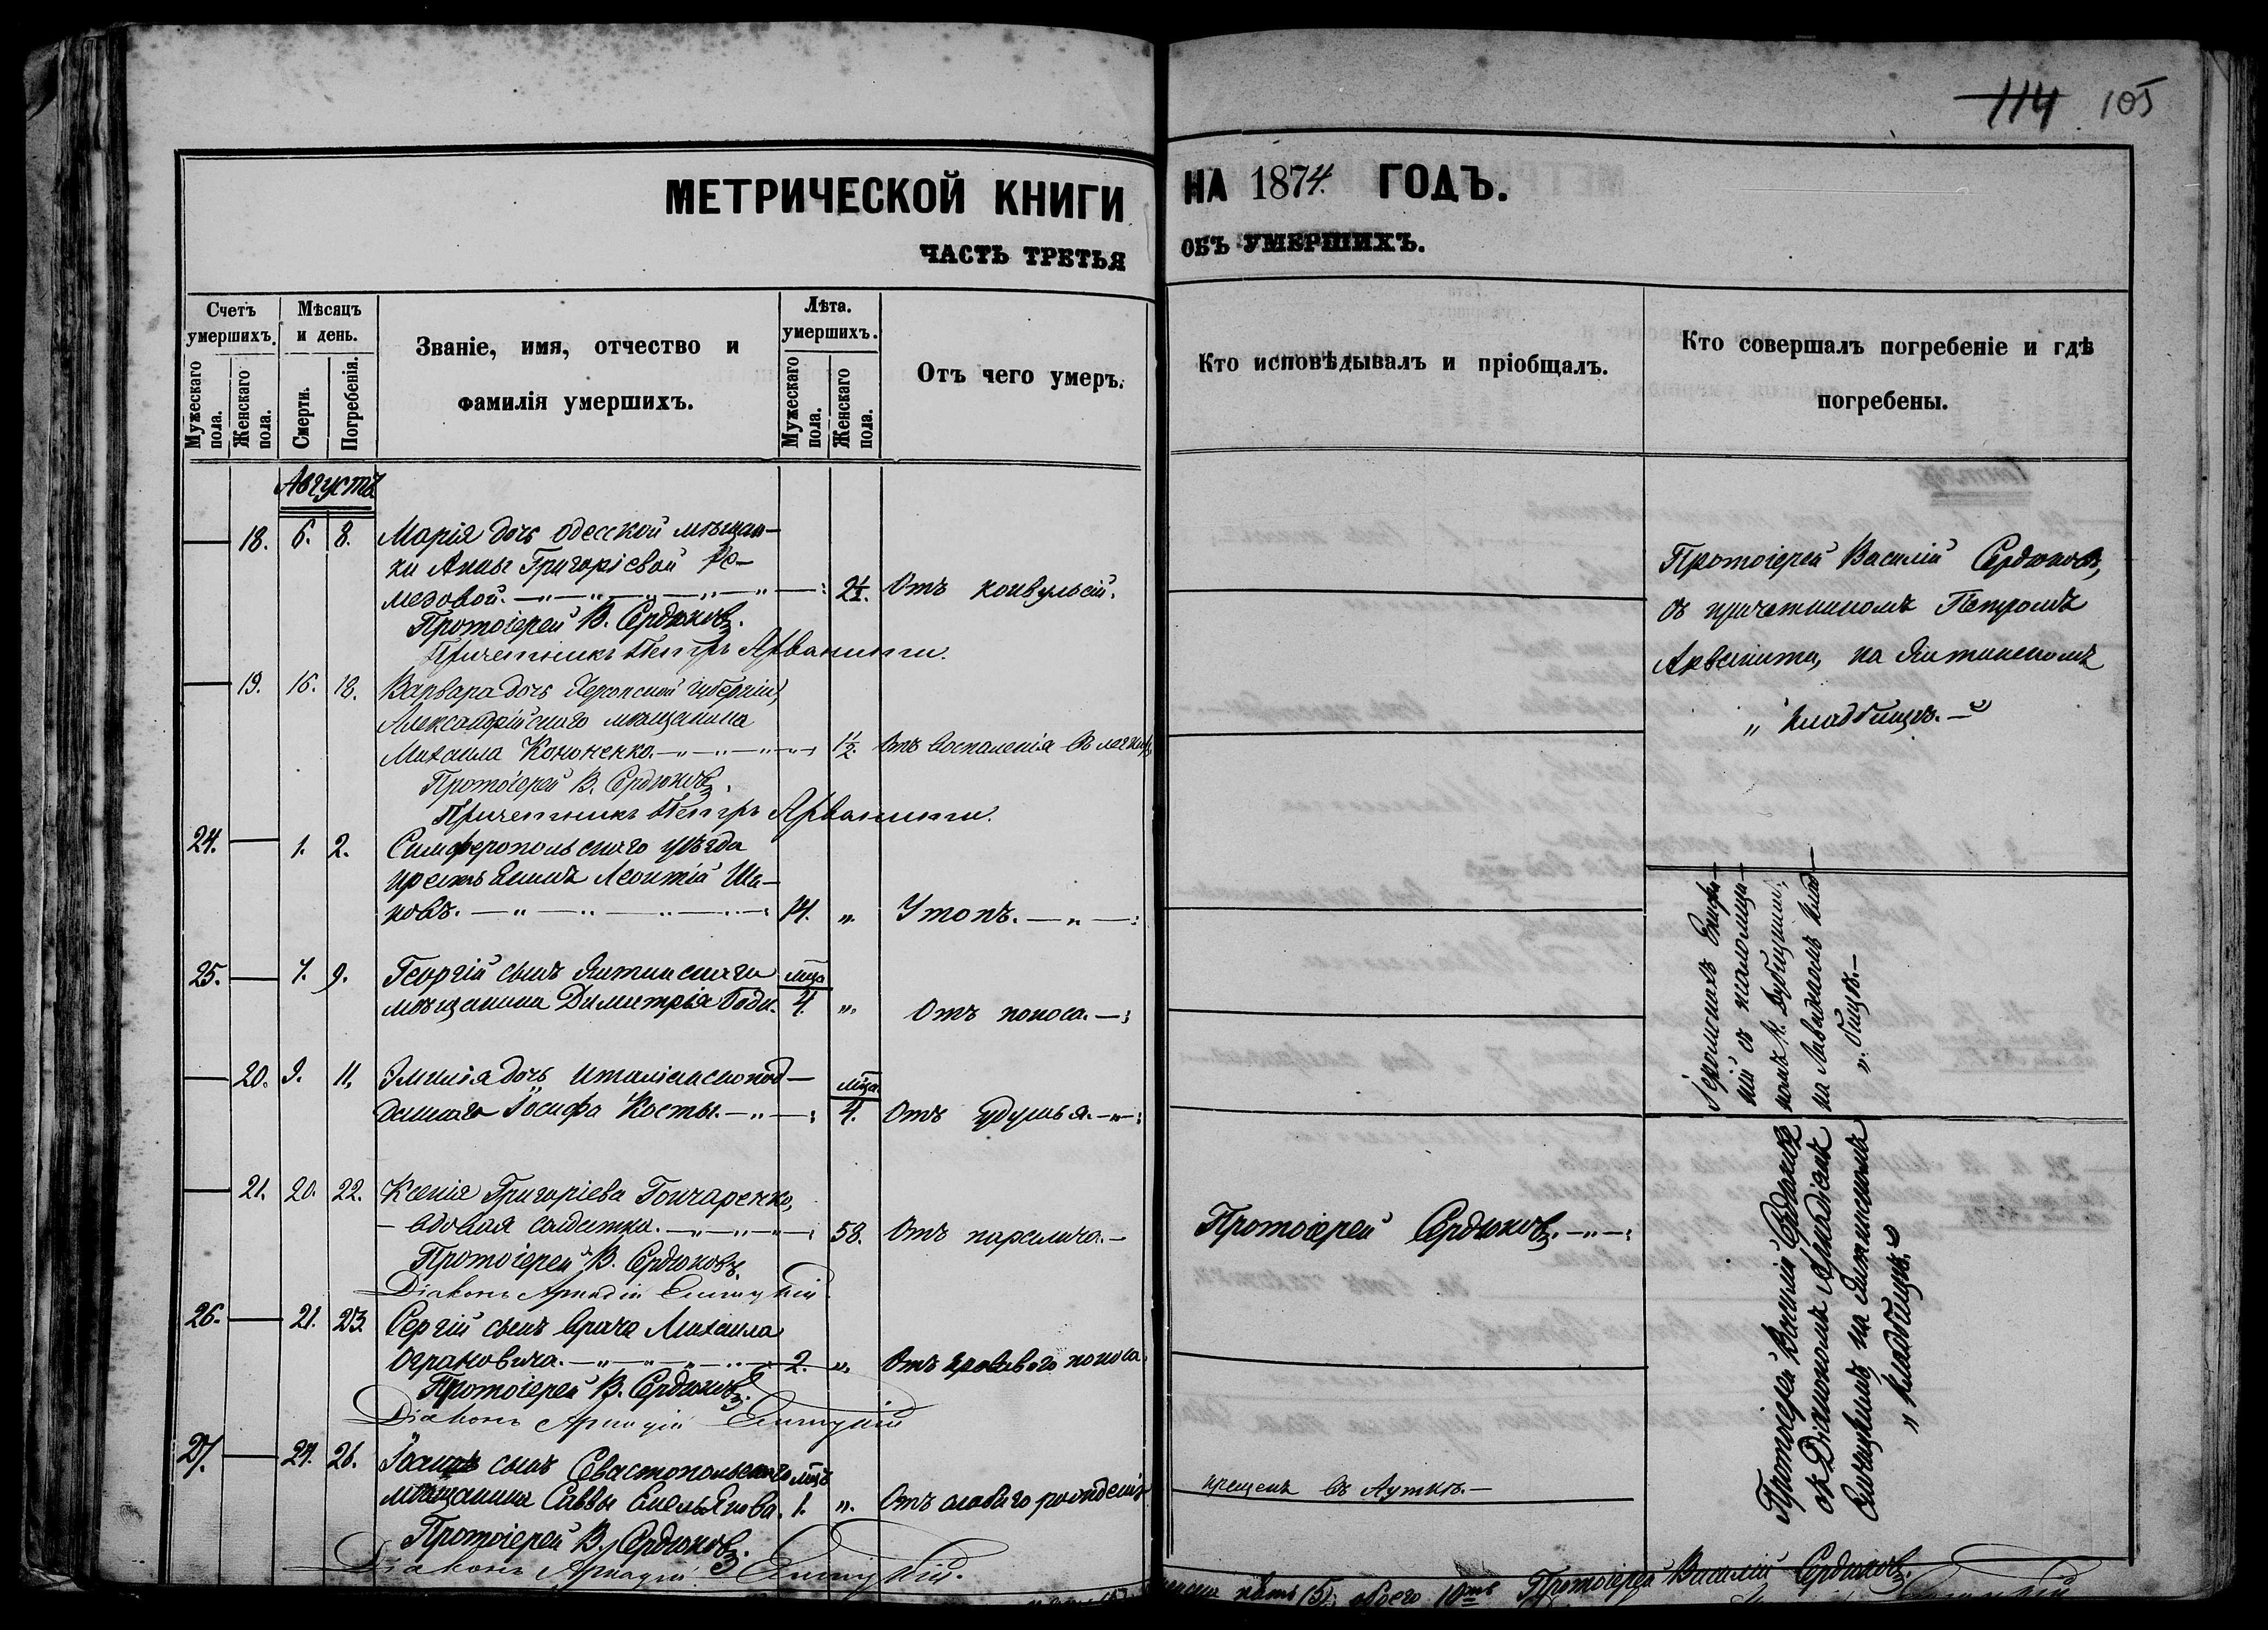 114 105
МЕТРИЧЕСКОЙ КНИГИ НА 1874. ГОДЪ.
ЧАСТЬ ТРЕТЬЯ ОБЪ УМЕРШИХЪ.
Счетъ умершихъ.
Мѣсяцъ и день.
Званіе, имя, отчество и
фамилія умершихъ.
Лѣта. умершихъ.
Отъ чего умеръ.
Кто исповѣдывалъ и пріобщалъ.
Кто совершалъ погребеніе и гдѣ
погребены.
Мужескаго пола.
Женскаго пола.
Смерти.
Погребенія.
Мужескаго пола.
Женскаго пола.
Августъ
18. 6. 8. Марія дочь одесской мѣщан-
ки Анны Григоріевой
медовой. Отъ конвульсій.
Протоіерей В. Сердюковъ.
Причетникъ Петръ Арванити.
19. 16. 18. Варвара дочь Херсонской губерніи,
Александрійскаго мѣщанина
Михаила Кононенко. 1½. Отъ воспаленія въ легкихъ
Протоіерей В. Сердюковъ.
Причетникъ Петръ Арванити.
Протоіерей Василій Сердюковъ,
съ причетникомъ Петромъ
Арванити, на Ялтинскомъ
„ кладбищѣ. „
24. 1. 2. Симферопольскаго уѣзда
Леонтій Ша-
ховъ. 14. „ Утопъ.
25. 7. 9. Георгій сынъ Ялтинскаго мца
мѣщанина Димитрія 4. „ Отъ поноса.
20. 9. 11. Эмилія дочь Италіанскопод- мца
даннаго Іосифа Косты. 4. Отъ удушья.
Іеромонахъ
на Ливадскомъ клад-
„ бищѣ.
21. 20. 22. Ксенія Григоріева Гончаренко,
вдовая солдатка. 58. Отъ паралича.
Протоіерей Сердюковъ.
Протоіерей В. Сердюковъ.
Діаконъ Аркадій
26. 21. 23. Сергій сынъ врача Михаила
Ограновича. 2. „ Отъ кроваваго поноса.
Протоіерей В. Сердюковъ.
Діаконъ Аркадій
27. 24. 26. Іоаннъ сынъ Севастопольскаго мцъ
мѣщанина Саввы Емельянова. 1. „ Отъ слабаго рожденія
крещенъ въ Ауткѣ.
Протоіерей В. Сердюковъ.
Діаконъ Аркадій
Протоіерей Василій Сердюковъ
съ Діакономъ Аркадіемъ
на Ялтинскомъ
„ кладбищѣ. „
пять (5), обоего 10ть Протоіерей Василій Сердюковъ.